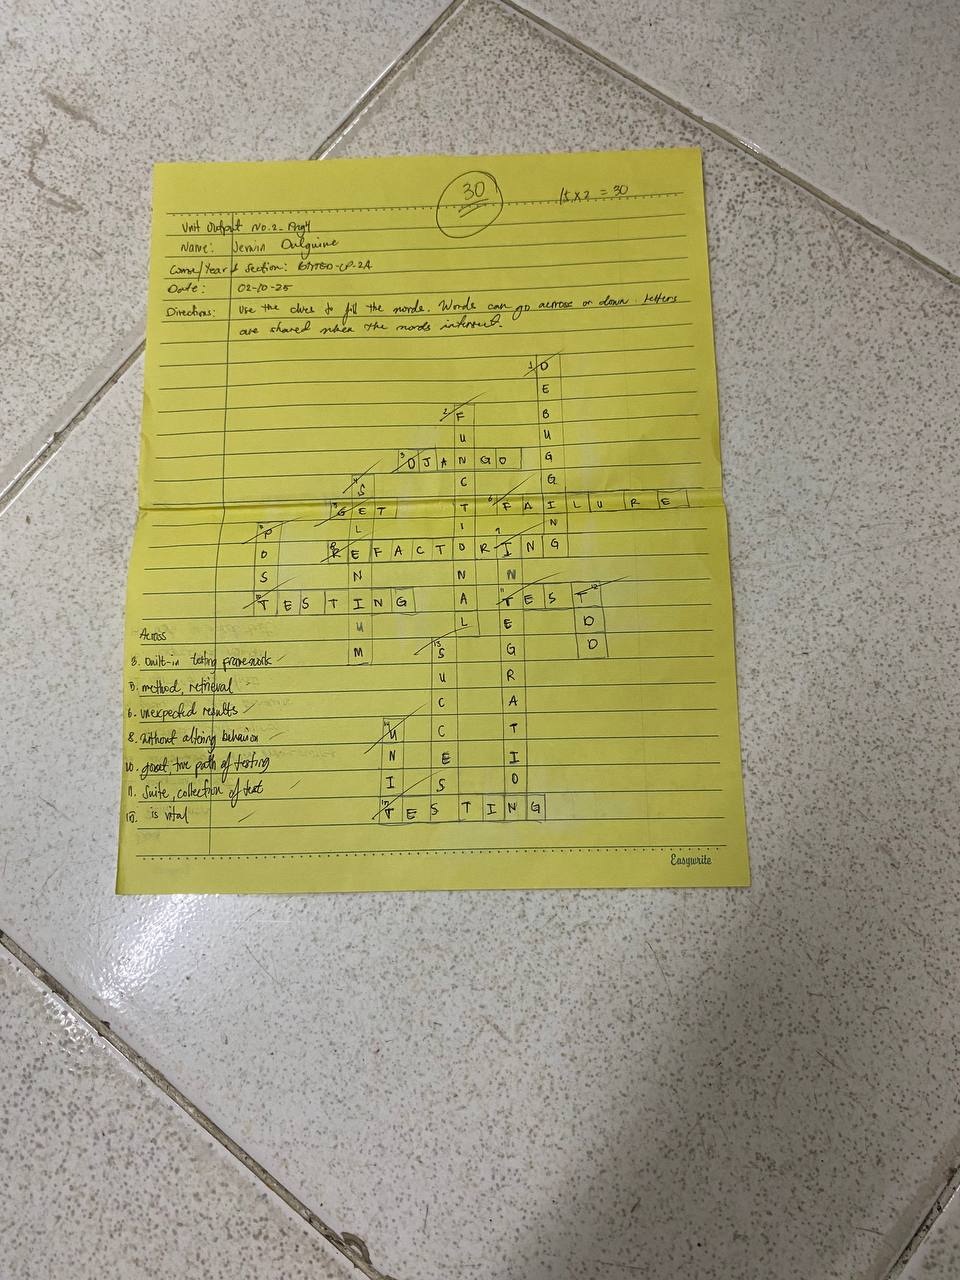 30
15 x 2 = 30
Unit Output No. 2 -
Name: Jerwin
Course/Year & Section: -2A
Date: 02-10-25
Directions: Use the clues to fill the words. Words can go across or down. Letters
are shared when the words intersect.
1 DEBUGGING
2 FUNCTIONAL
3 DJANGO
4 SELENIUM
5 GET
6 FAILURE
7 POST
8 REFACTORING
9 INTEGRATION
10 TESTING
11 TEST
12 TDD
13 SUCCESS
14 UNIT
15 TESTING
Across
3. built-in testing framework
5. method, retrieval
6. unexpected results
8. without altering behavior
10. path of testing
11. Suite, collection of test
15. is vital
Easywrite